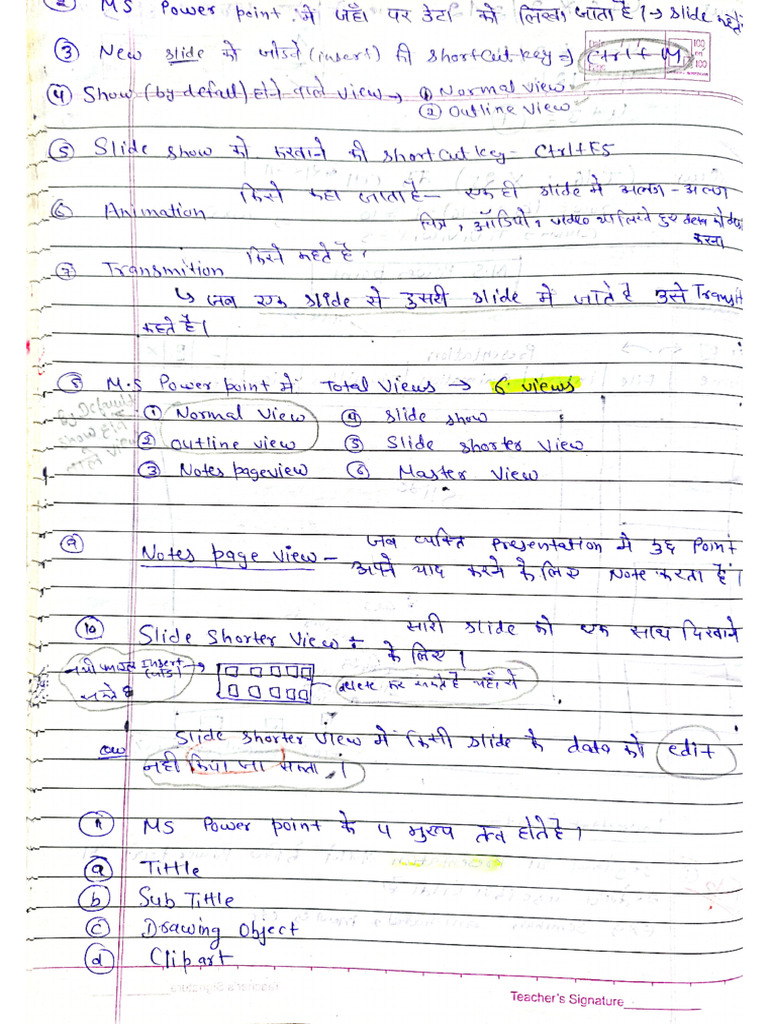 ② MS Power point में जहाँ पर डेटा को लिखा जाता है। → slide कहते
③ New slide को जोडने (insert) की shortcut key ⇒ Ctrl + M
④ Show (by defall) होने वाले view → ① Normal view
② Outline view
⑤ Slide show को करवाने की shortcut key - Ctrl+F5
⑥ Animation किसे कहा जाता है - एक ही slide में अलग - अलग
चित्र, ऑडियो, video या लिखे हुए data को
करना
⑦ Transmition किसे कहते है।
↳ जब एक slide से दुसरी slide में जाते है उसे Transit
कहते है।
⑧ M.S Power point में Total Views → 6 views
① Normal View ④ Slide show
② Outline view ⑤ Slide shorter View
③ Notes pageview ⑥ Master View
⑨ Notes page view - जब व्यक्ति presentation में कुछ Point
अपने याद करने के लिए Note करता है।
⑩ Slide Shorter View : सारी slide को एक साथ दिखाने
के लिए।
insert
delete कर सकते है यहाँ से
Slide shorter view में किसी slide के data को edit
नही किया जा सकता।
⑪ MS Power point के 4 मुख्य तत्व होते है।
ⓐ Tittle
ⓑ Sub Tittle
ⓒ Drawing Object
ⓓ Clipart
Teacher's Signature